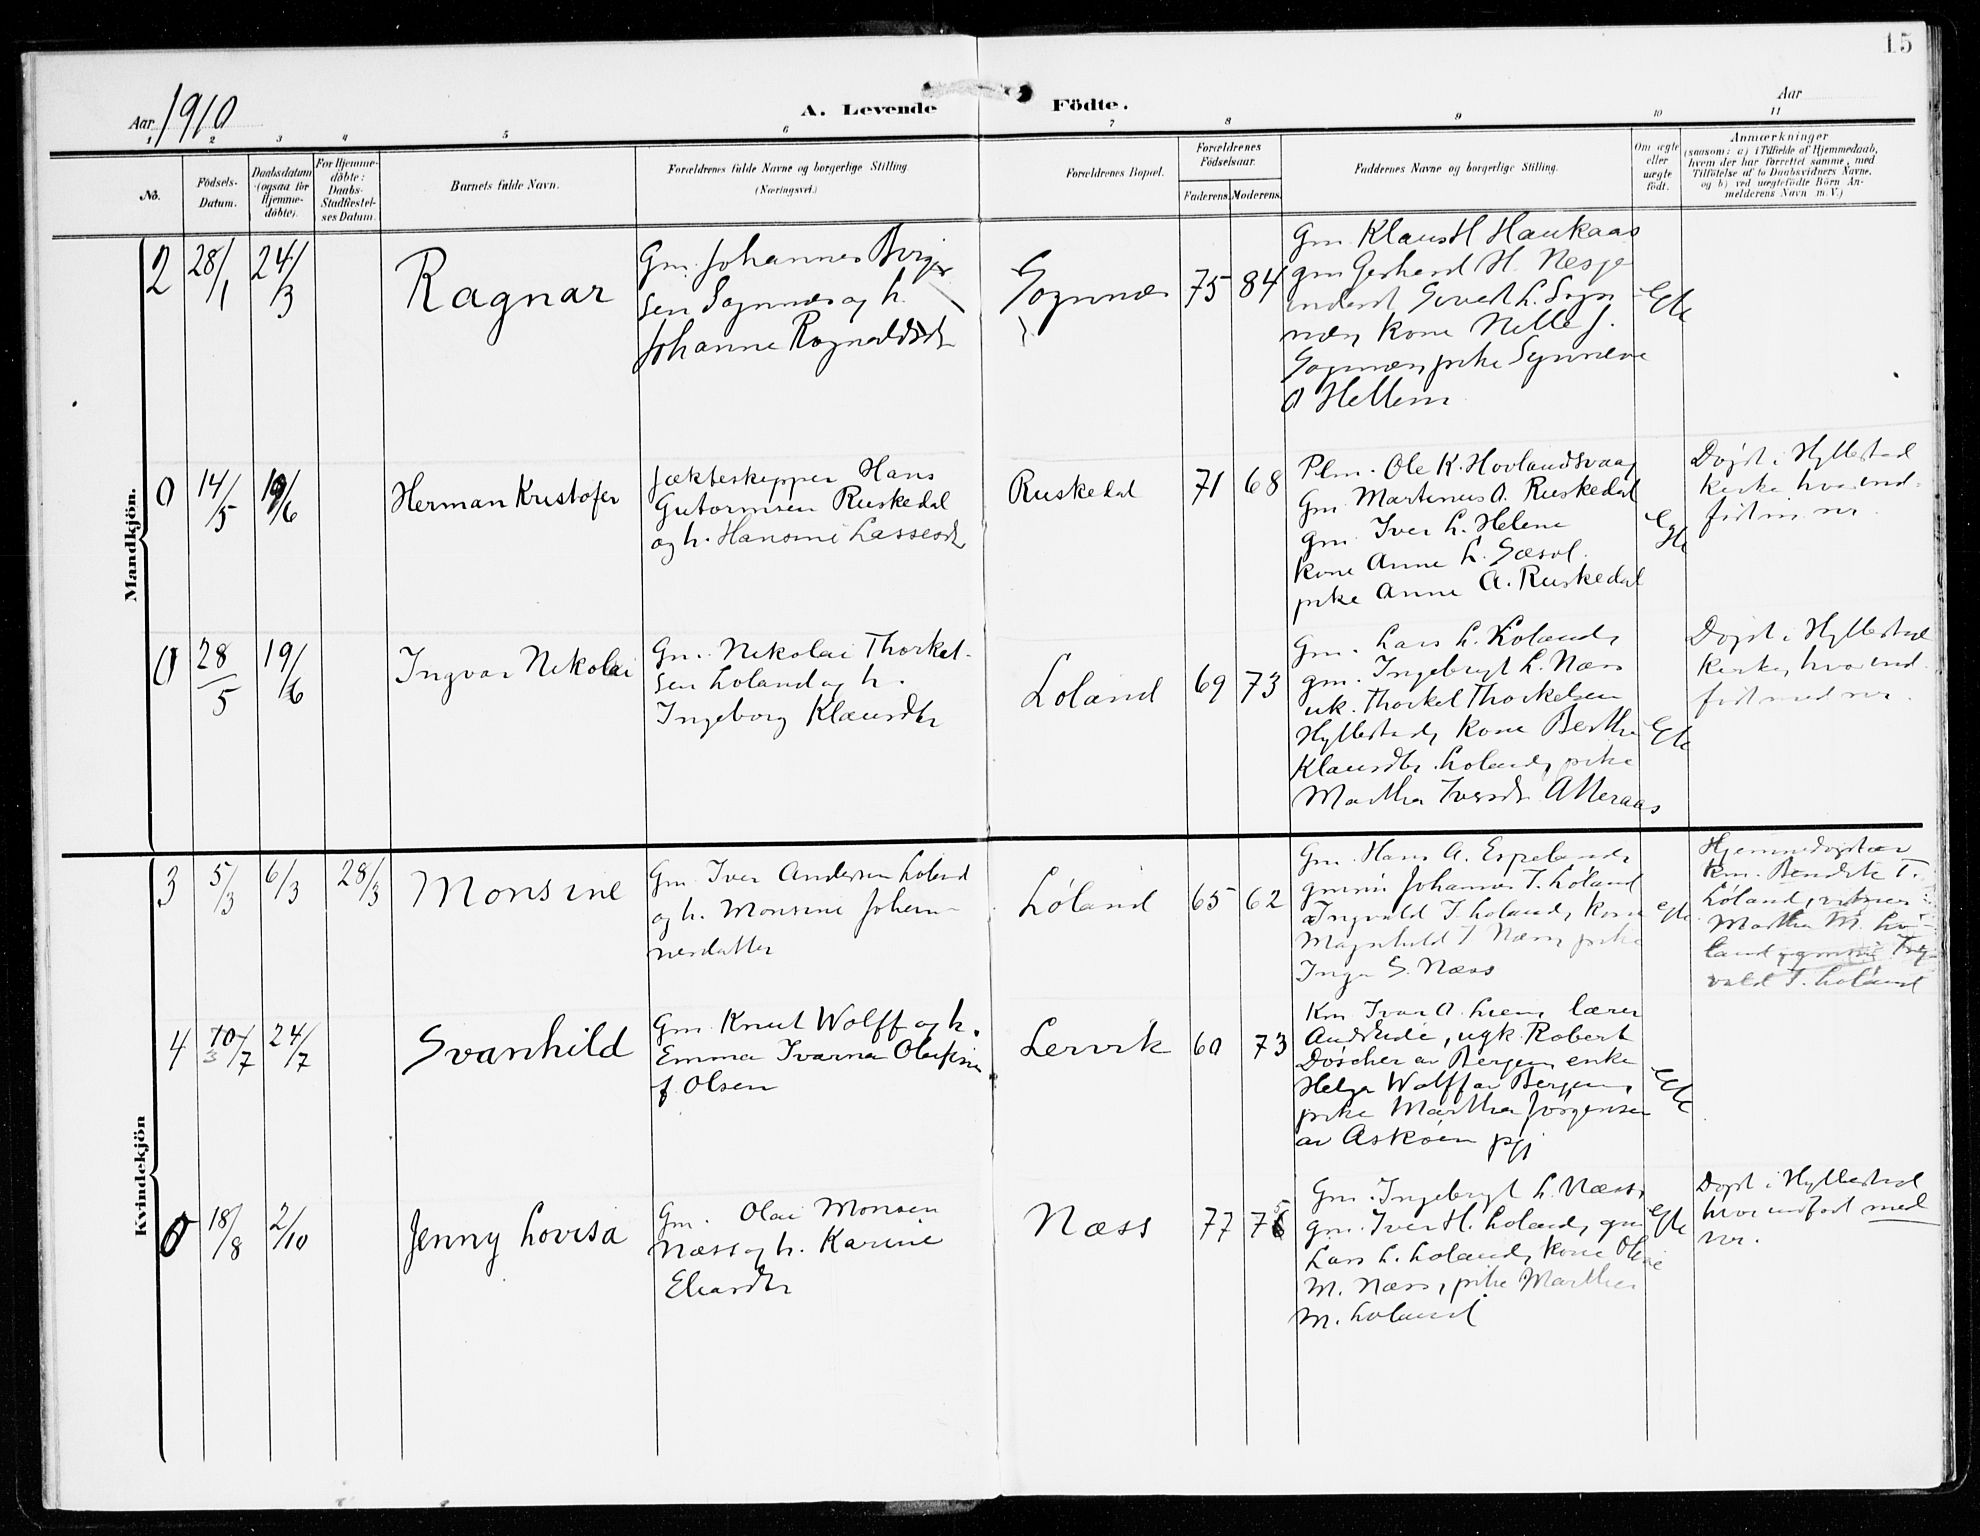 15
Aar 1910
A. Levende Födte.
Aar
1 2 3 4 5 6 7 8 9 10 11
No.
Födsels-Datum.
Daabsdatum (ogsaa for Hjemme-döbte).
For Hjemme-döbte: Daabs-Stadfæstel-ses Datum.
Barnets fulde Navn.
Forældrenes fulde Navne og borgerlige Stilling.
(Næringsvei.)
Forældrenes Bopæl.
Forældrenes Födselsaar.
Faderens.
Moderens.
Faddernes Navne og borgerlige Stilling.
Om ægte eller uægte födt.
Anmærkninger
(saasom: a) i Tilfælde af Hjemmedaab,
hvem der har forrettet samme, med
Tilföielse af to Daabsvidners Navne,
og b) ved uægtefödte Börn An-
melderens Navn m. V.)
Mandkjön.
2 28/1 24/3
Ragnar
Gm. Johannes Birger
sen Sognnæs og h.
Johanne Ragnvaldsdtr
Sognnæs
75 84
Gm. Klaus H Haukaas
gm Gerhard H. Nesje
Sivert L. Sogn
næs, kone Nille J.
Sognnæs, pike Synneve
O Hellem
Egte
0 14/5 19/6
Herman Kristofer
Jækteskipper Hans
Gutormsen Ruskedal
og h. Hansine Lassesdtr
Ruskedal
71 68
Plm. Ole K. Hovlandsvaag
Gm. Martinus A. Ruskedal
gm. Iver L. Helene
kone Anne L. Sæsol.
pike Anne A. Ruskedal
Egte
Døpt i Hyllestad
kirke, hvor ind-
ført m. nr.
0 28/5 19/6
Ingvar Nikolai
Gm. Nikolai Thorkel-
sen Loland og h.
Ingeborg Klausdtr
Loland
69 73
Gm. Lars L. Loland,
gm. Ingebrigt L. Næss
uk. Thorkel Thorkelsen
Hyllestad, kone Berthe
Klausdtr. Loland, pike
Martha Iversdtr Atteraas
Egte
Døpt i Hyllestad
kirke, hvor ind-
ført med nr.
Kvindekjön
3 5/3 6/3 28/3
Monsine
Gm. Iver Andersen Loland
og h. Monsine Johan-
nesdatter
Løland
65 62
Gm. Hans A. Espeland,
Johannes T. Løland
Ingvald T. Loland, kone
Magnhild T Næss, pike
Inga S. Næss
egte
Hjemmedøpt av
Km. Bendik T.
Løland, vitner
Martha M. Lø-
land, Ing-
vald T. Loland
4 10/7 24/7
3
Svanhild
Gm. Knut Wolff og h.
Emma Ivarna Olufine
f. Olsen
Lervik
60 73
Km Ivar A. Liem, lærer
And. Eide, ugk. Robert
Døscher av Bergen, enke
Helga Wolff av Bergen,
pike Martha Jørgensen
av Askøen pgj
Egte
0 18/8 2/10
Jenny Lovisa
Gm. Olai Monsen
Næss og h. Karine
Eliasdtr
Næss
77 75
Gm. Ingebrigt L. Næss,
gm. Iver H. Loland, gm
Lars L. Loland, kone Oline
M. Næss, pike Martha
M. Loland
Egte
Døpt i Hyllestad
hvor indført med
nr.